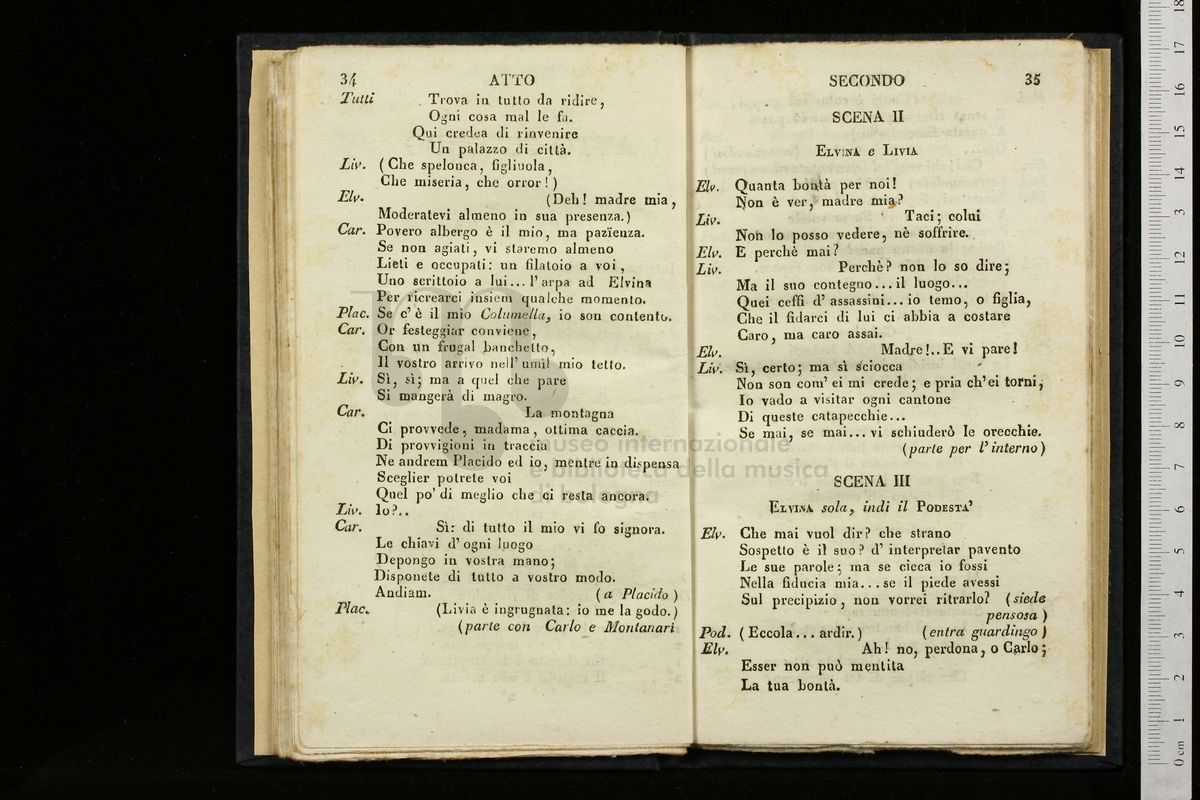 34 ATTO
Tutti Trova in tutto da ridire,
Ogni cosa mal le fa.
Qui credea di rinvenire
Un palazzo di città.
Liv. (Che spelonca, figliuola,
Che miseria, che orror!)
Elv. (Deh! madre mia,
Moderatevi almeno in sua presenza.)
Car. Povero albergo è il mio, ma pazïenza.
Se non agiati, vi staremo almeno
Lieti e occupati: un filatoio a voi,
Uno scrittoio a lui... l'arpa ad Elvina
Per ricrearci insiem qualche momento.
Plac. Se c'è il mio Columella, io son contento.
Car. Or festeggiar conviene,
Con un frugal banchetto,
Il vostro arrivo nell'umil mio tetto.
Liv. Sì, sì; ma a quel che pare
Si mangerà di magro.
Car. La montagna
Ci provvede, madama, ottima caccia.
Di provvigioni in traccia
Ne andrem Placido ed io, mentre in dispensa
Sceglier potrete voi
Quel po' di meglio che ci resta ancora.
Liv. Io?..
Car. Sì: di tutto il mio vi fo signora.
Le chiavi d'ogni luogo
Depongo in vostra mano;
Disponete di tutto a vostro modo.
Andiam. (a Placido)
Plac. (Livia è ingrugnata: io me la godo.)
(parte con Carlo e Montanari
SECONDO 35
SCENA II
ELVINA e LIVIA
Elv. Quanta bontà per noi!
Non è ver, madre mia?
Liv. Taci; colui
Non lo posso vedere, nè soffrire.
Elv. E perchè mai?
Liv. Perchè? non lo so dire;
Ma il suo contegno... il luogo...
Quei ceffi d'assassini... io temo, o figlia,
Che il fidarci di lui ci abbia a costare
Caro, ma caro assai.
Elv. Madre!.. E vi pare!
Liv. Sì, certo; ma sì sciocca
Non son com'ei mi crede; e pria ch'ei torni,
Io vado a visitar ogni cantone
Di queste catapecchie...
Se mai, se mai... vi schiuderò le orecchie.
(parte per l'interno)
SCENA III
ELVINA sola, indi il PODESTA'
Elv. Che mai vuol dir? che strano
Sospetto è il suo? d'interpretar pavento
Le sue parole; ma se cieca io fossi
Nella fiducia mia... se il piede avessi
Sul precipizio, non vorrei ritrarlo? (siede
pensosa)
Pod. (Eccola... ardir.) (entra guardingo)
Elv. Ah! no, perdona, o Carlo;
Esser non può mentita
La tua bontà.
museo internazionale
e biblioteca della musica
di bologna
0 cm 1 2 3 4 5 6 7 8 9 10 11 12 13 14 15 16 17 18